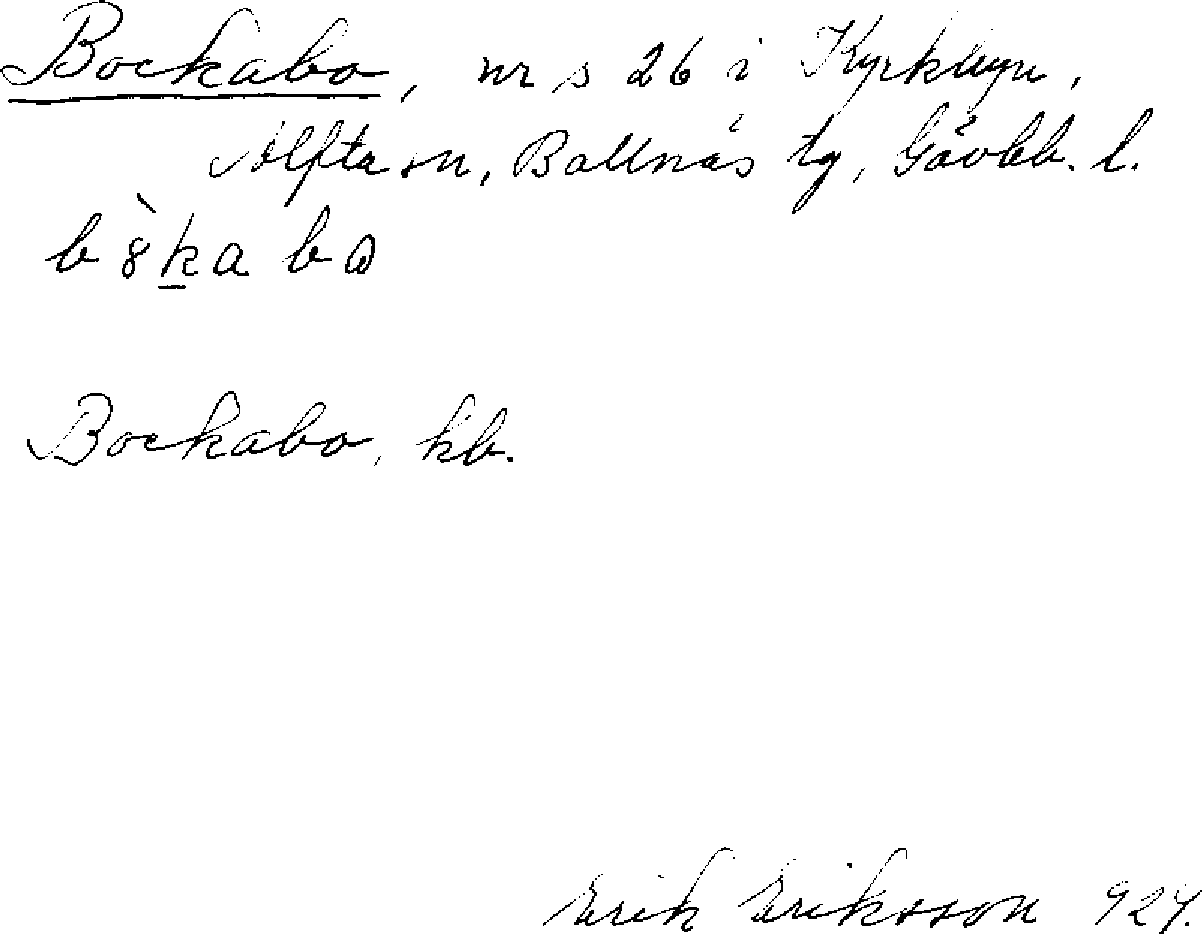 Bockabo, nr s 26 i Kyrkbyn,
Alfta sn, Bollnäs tg, Gävleb. l.
b8̀k̲a bɷ
Bockabo, kb.
Erik Eriksson 924.